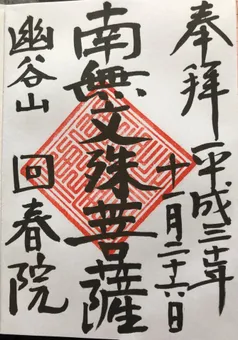 奉拝
平成三十年
十一月二十六日
南無文殊菩薩
幽谷山
回春院